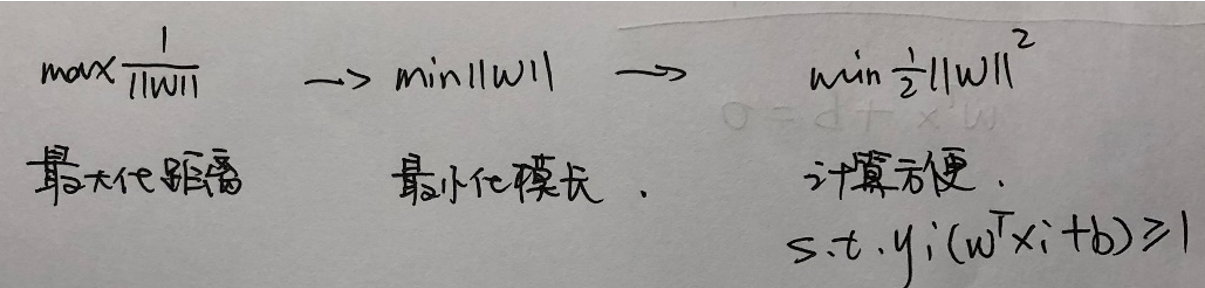 max 1/||W|| → min||W|| → min 1/2||W||²
最大化距离 最小化模长. 计算方便.
s.t. yi(wᵀxi+b)≥1